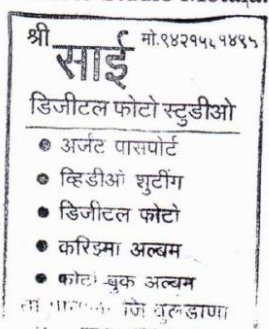 श्री साई मो.९४२१५६१४९५
डिजीटल फोटो स्टुडीओ
अर्जंट पासपोर्ट
व्हिडीओ शुटींग
डिजीटल फोटो
करिझ्मा अल्बम
फोटो बुक अल्बम
जि बुलडाणा